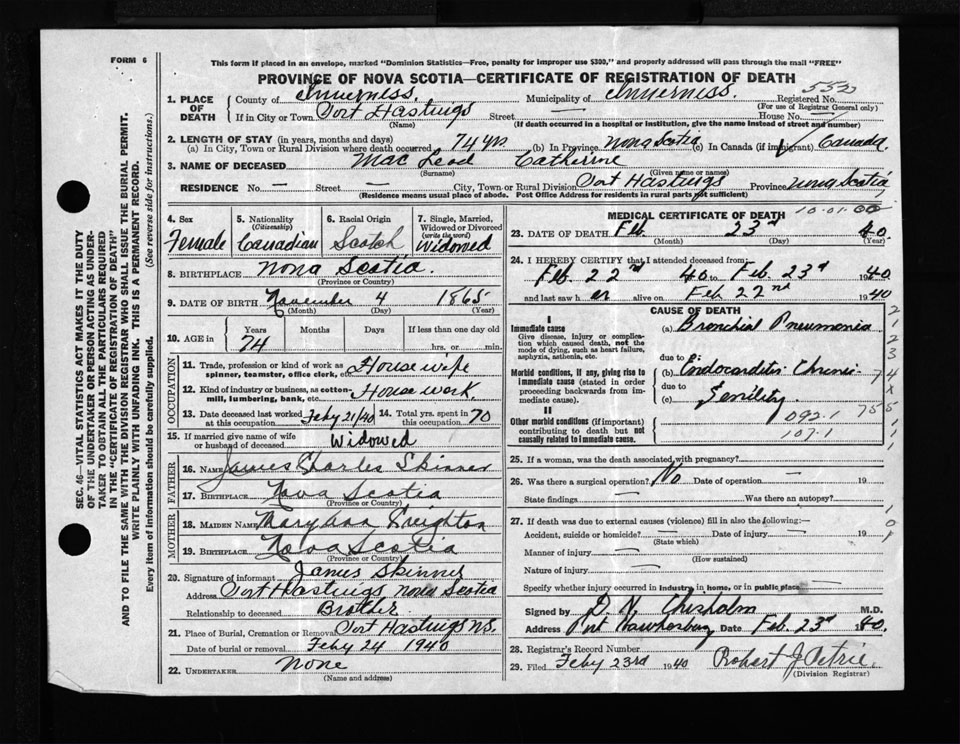 FORM 6
This form if placed in an envelope, marked "Dominion Statistics—Free, penalty for improper use $300," and properly addressed will pass through the mail "FREE"
PROVINCE OF NOVA SCOTIA—CERTIFICATE OF REGISTRATION OF DEATH
552
1. PLACE OF DEATH County of Inverness. Municipality of Inverness. Registered No.
(For use of Registrar General only)
If in City or Town Port Hastings Street — House No. —
(Name) (If death occurred in a hospital or institution, give the name instead of street and number)
2. LENGTH OF STAY (in years, months and days)
(a) In City, Town or Rural Division where death occurred 74 yrs (b) In Province Nova Scotia (c) In Canada (if immigrant) Canada.
3. NAME OF DECEASED Mac Leod Catherine
(Surname) (Given name or names)
RESIDENCE No. — Street — City, Town or Rural Division Port Hastings Province Nova Scotia
(Residence means usual place of abode. Post Office Address for residents in rural parts not sufficient)
SEC. 46—VITAL STATISTICS ACT MAKES IT THE DUTY
OF THE UNDERTAKER OR PERSON ACTING AS UNDER-
TAKER TO OBTAIN ALL THE PARTICULARS REQUIRED
IN THE "CERTIFICATE OF REGISTRATION OF DEATH"
AND TO FILE THE SAME WITH THE DIVISION REGISTRAR WHO SHALL ISSUE THE BURIAL PERMIT.
WRITE PLAINLY WITH UNFADING INK. THIS IS A PERMANENT RECORD.
Every item of information should be carefully supplied. (See reverse side for instructions.)
4. Sex Female
5. Nationality (Citizenship) Canadian
6. Racial Origin Scotch
7. Single, Married, Widowed or Divorced (write the word) Widowed
8. BIRTHPLACE Nova Scotia.
(Province or Country)
9. DATE OF BIRTH November 4 1865
(Month) (Day) (Year)
10. AGE in Years 74 Months Days If less than one day old
hrs. or min.
OCCUPATION
11. Trade, profession or kind of work as spinner, teamster, office clerk, etc. House wife
12. Kind of industry or business, as cotton-mill, lumbering, bank, etc. House work
13. Date deceased last worked at this occupation Feby 21/40 14. Total yrs. spent in this occupation 70
15. If married give name of wife or husband of deceased Widowed
FATHER
16. NAME James Charles Skinner
17. BIRTHPLACE Nova Scotia
(Province or Country)
MOTHER
18. MAIDEN NAME Mary Ann Creighton
19. BIRTHPLACE Nova Scotia
(Province or Country)
20. Signature of informant James Skinner
Address Port Hastings Nova Scotia
Relationship to deceased Brother
21. Place of Burial, Cremation or Removal Port Hastings N.S.
Date of burial or removal Feby 24 1940
22. UNDERTAKER None
(Name and address)
MEDICAL CERTIFICATE OF DEATH
23. DATE OF DEATH Feb. 23d 40
(Month) (Day) (Year)
24. I HEREBY CERTIFY that I attended deceased from:
Feb. 22nd 40 to Feb. 23d 1940
and last saw her alive on Feb 22nd 1940
CAUSE OF DEATH
I
Immediate cause
Give disease, injury or complication which caused death, not the mode of dying, such as heart failure, asphyxia, asthenia, etc.
(a) Bronchial Pneumonia
due to
Morbid conditions, if any, giving rise to immediate cause (stated in order proceeding backwards from immediate cause).
(b) Endocarditis Chronic
due to
(c) Senility
II
Other morbid conditions (if important) contributing to death but not causally related to immediate cause.
092.1
107.1
25. If a woman, was the death associated with pregnancy?
26. Was there a surgical operation? No Date of operation 19
State findings — Was there an autopsy?
27. If death was due to external causes (violence) fill in also the following:—
Accident, suicide or homicide? — Date of injury — 19
(State which)
Manner of injury —
(How sustained)
Nature of injury —
Specify whether injury occurred in industry, in home, or in public place —
Signed by D. N. Chisholm M.D.
Address Port Hawkesbury Date Feb. 23d 1940.
28. Registrar's Record Number
29. Filed Feby 23rd 1940 Robert J Petrie.
(Division Registrar)